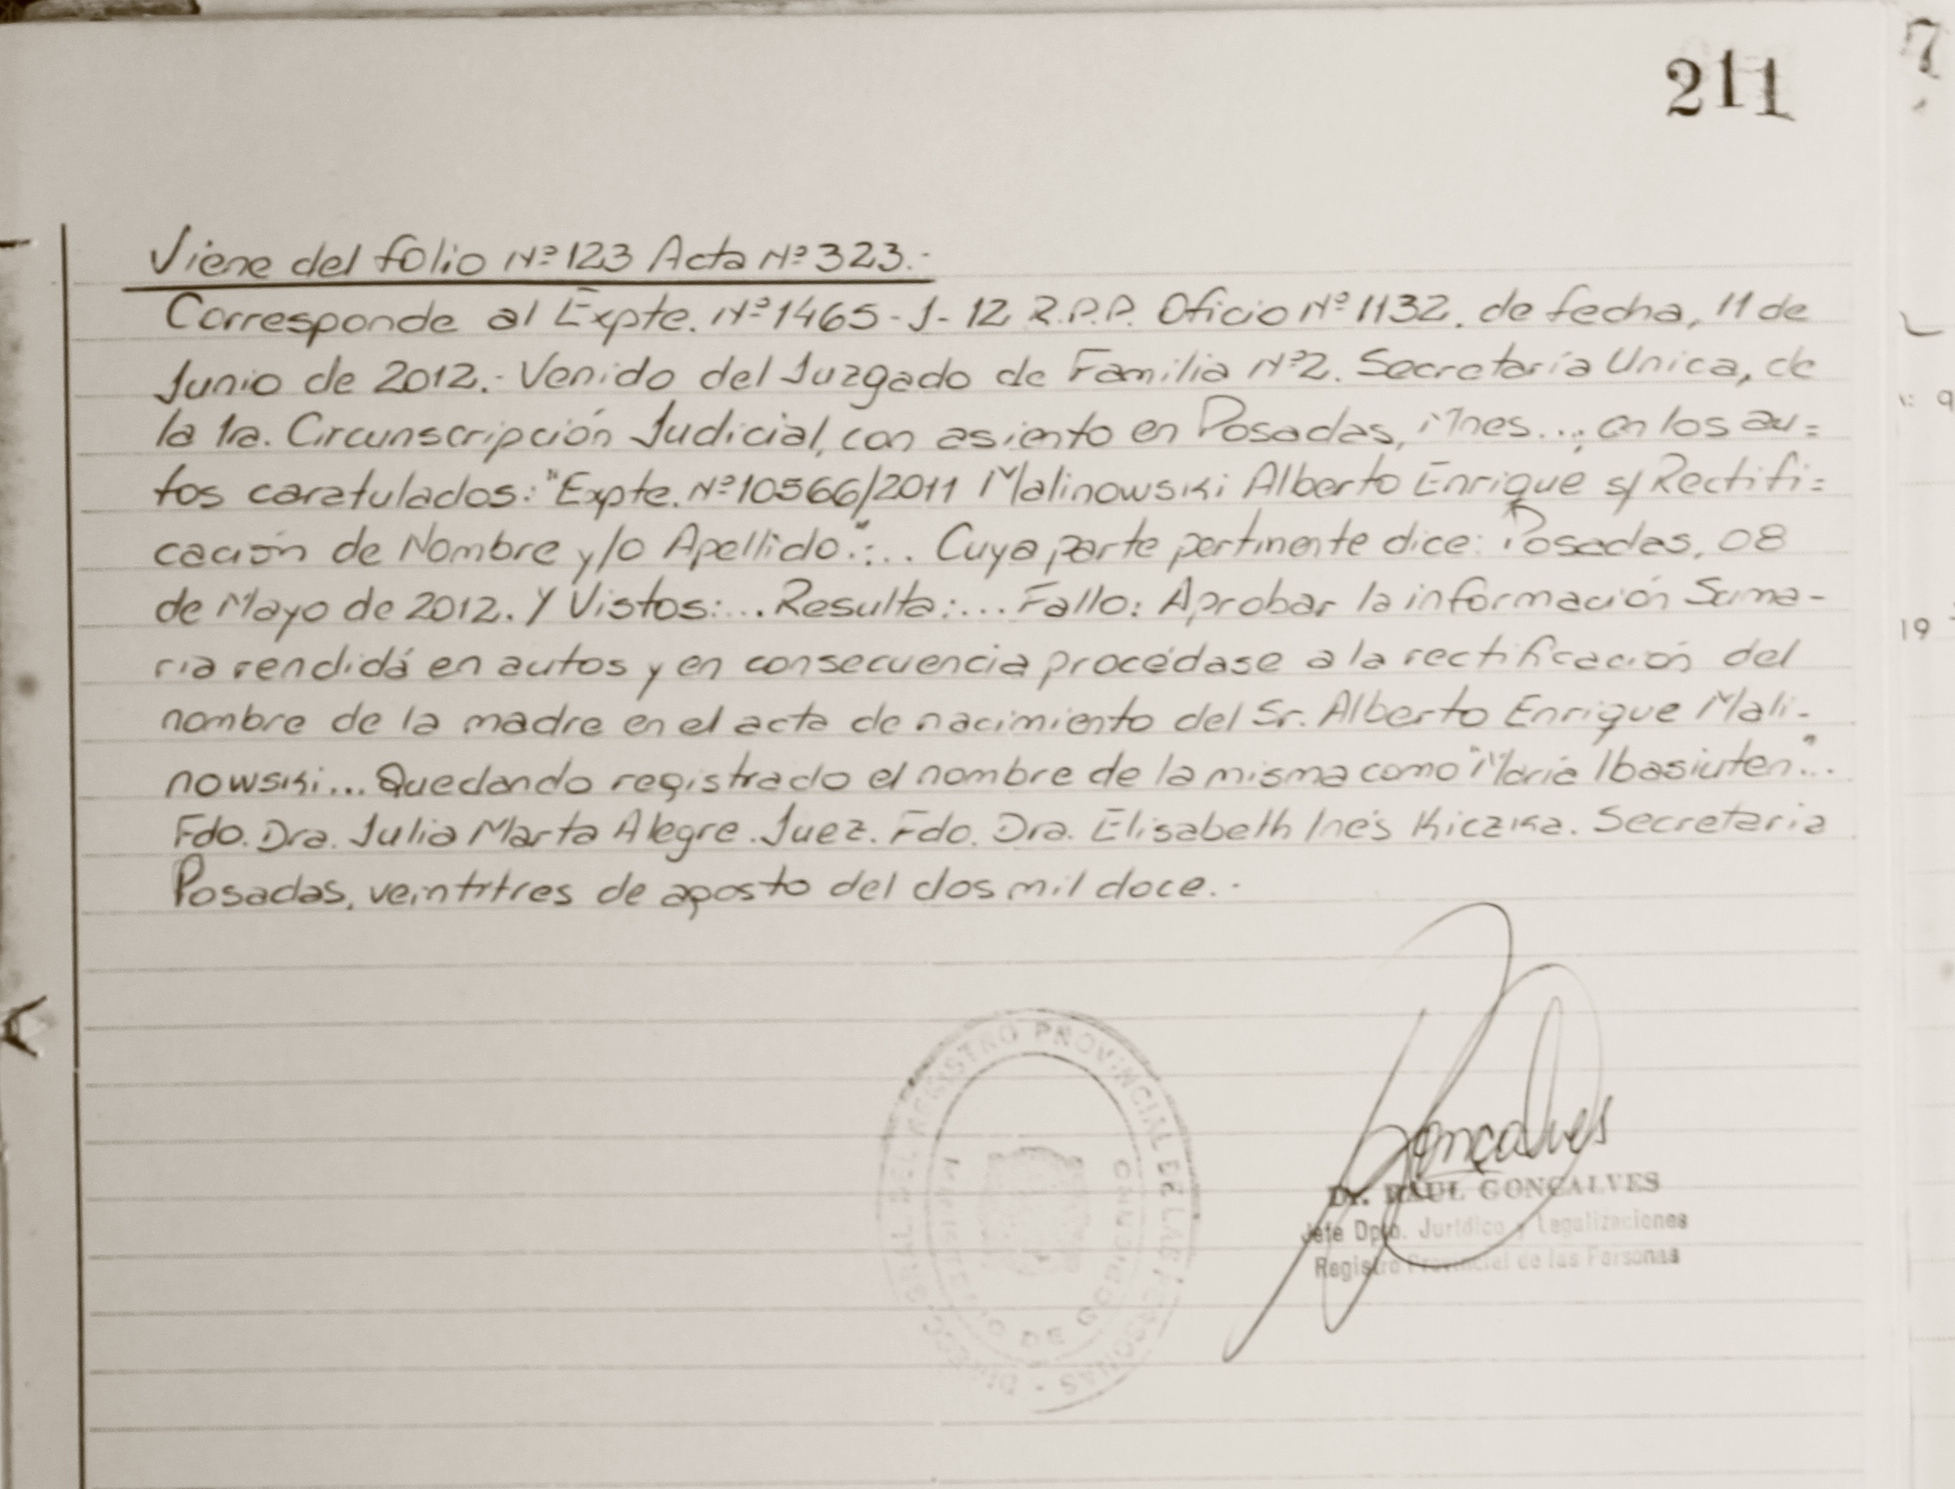 211
7
Viene del folio Nº 123 Acta Nº 323.-
Corresponde al Expte. Nº 1465-J-12 R.P.P. Oficio Nº 1132. de fecha, 11 de
Junio de 2012.- Venido del Juzgado de Familia Nº2. Secretaría Unica, de
la 1ra. Circunscripción Judicial, con asiento en Posadas, Mnes...; en los au=
tos caratulados: "Expte. Nº 10566/2011 Malinowski Alberto Enrique s/ Rectifi=
cación de Nombre y/o Apellido":... Cuya parte pertinente dice: Posadas, 08
de Mayo de 2012. Y Vistos:... Resulta:... Fallo: Aprobar la información Suma-
ria rendidá en autos y en consecuencia procédase a la rectificación del
nombre de la madre en el acta de nacimiento del Sr. Alberto Enrique Mali-
nowski... Quedando registrado el nombre de la misma como "María Ibasiuten"...
Fdo. Dra. Julia Marta Alegre. Juez. Fdo. Dra. Elisabeth Inés Kiczka. Secretaria
Posadas, veintitres de agosto del dos mil doce.-
REGISTRO PROVINCIAL DE LAS PERSONAS
Gonçalves
Dr. RAUL GONÇALVES
Jefe Dpto. Jurídico y Legalizaciones
Registro Provincial de las Personas
19